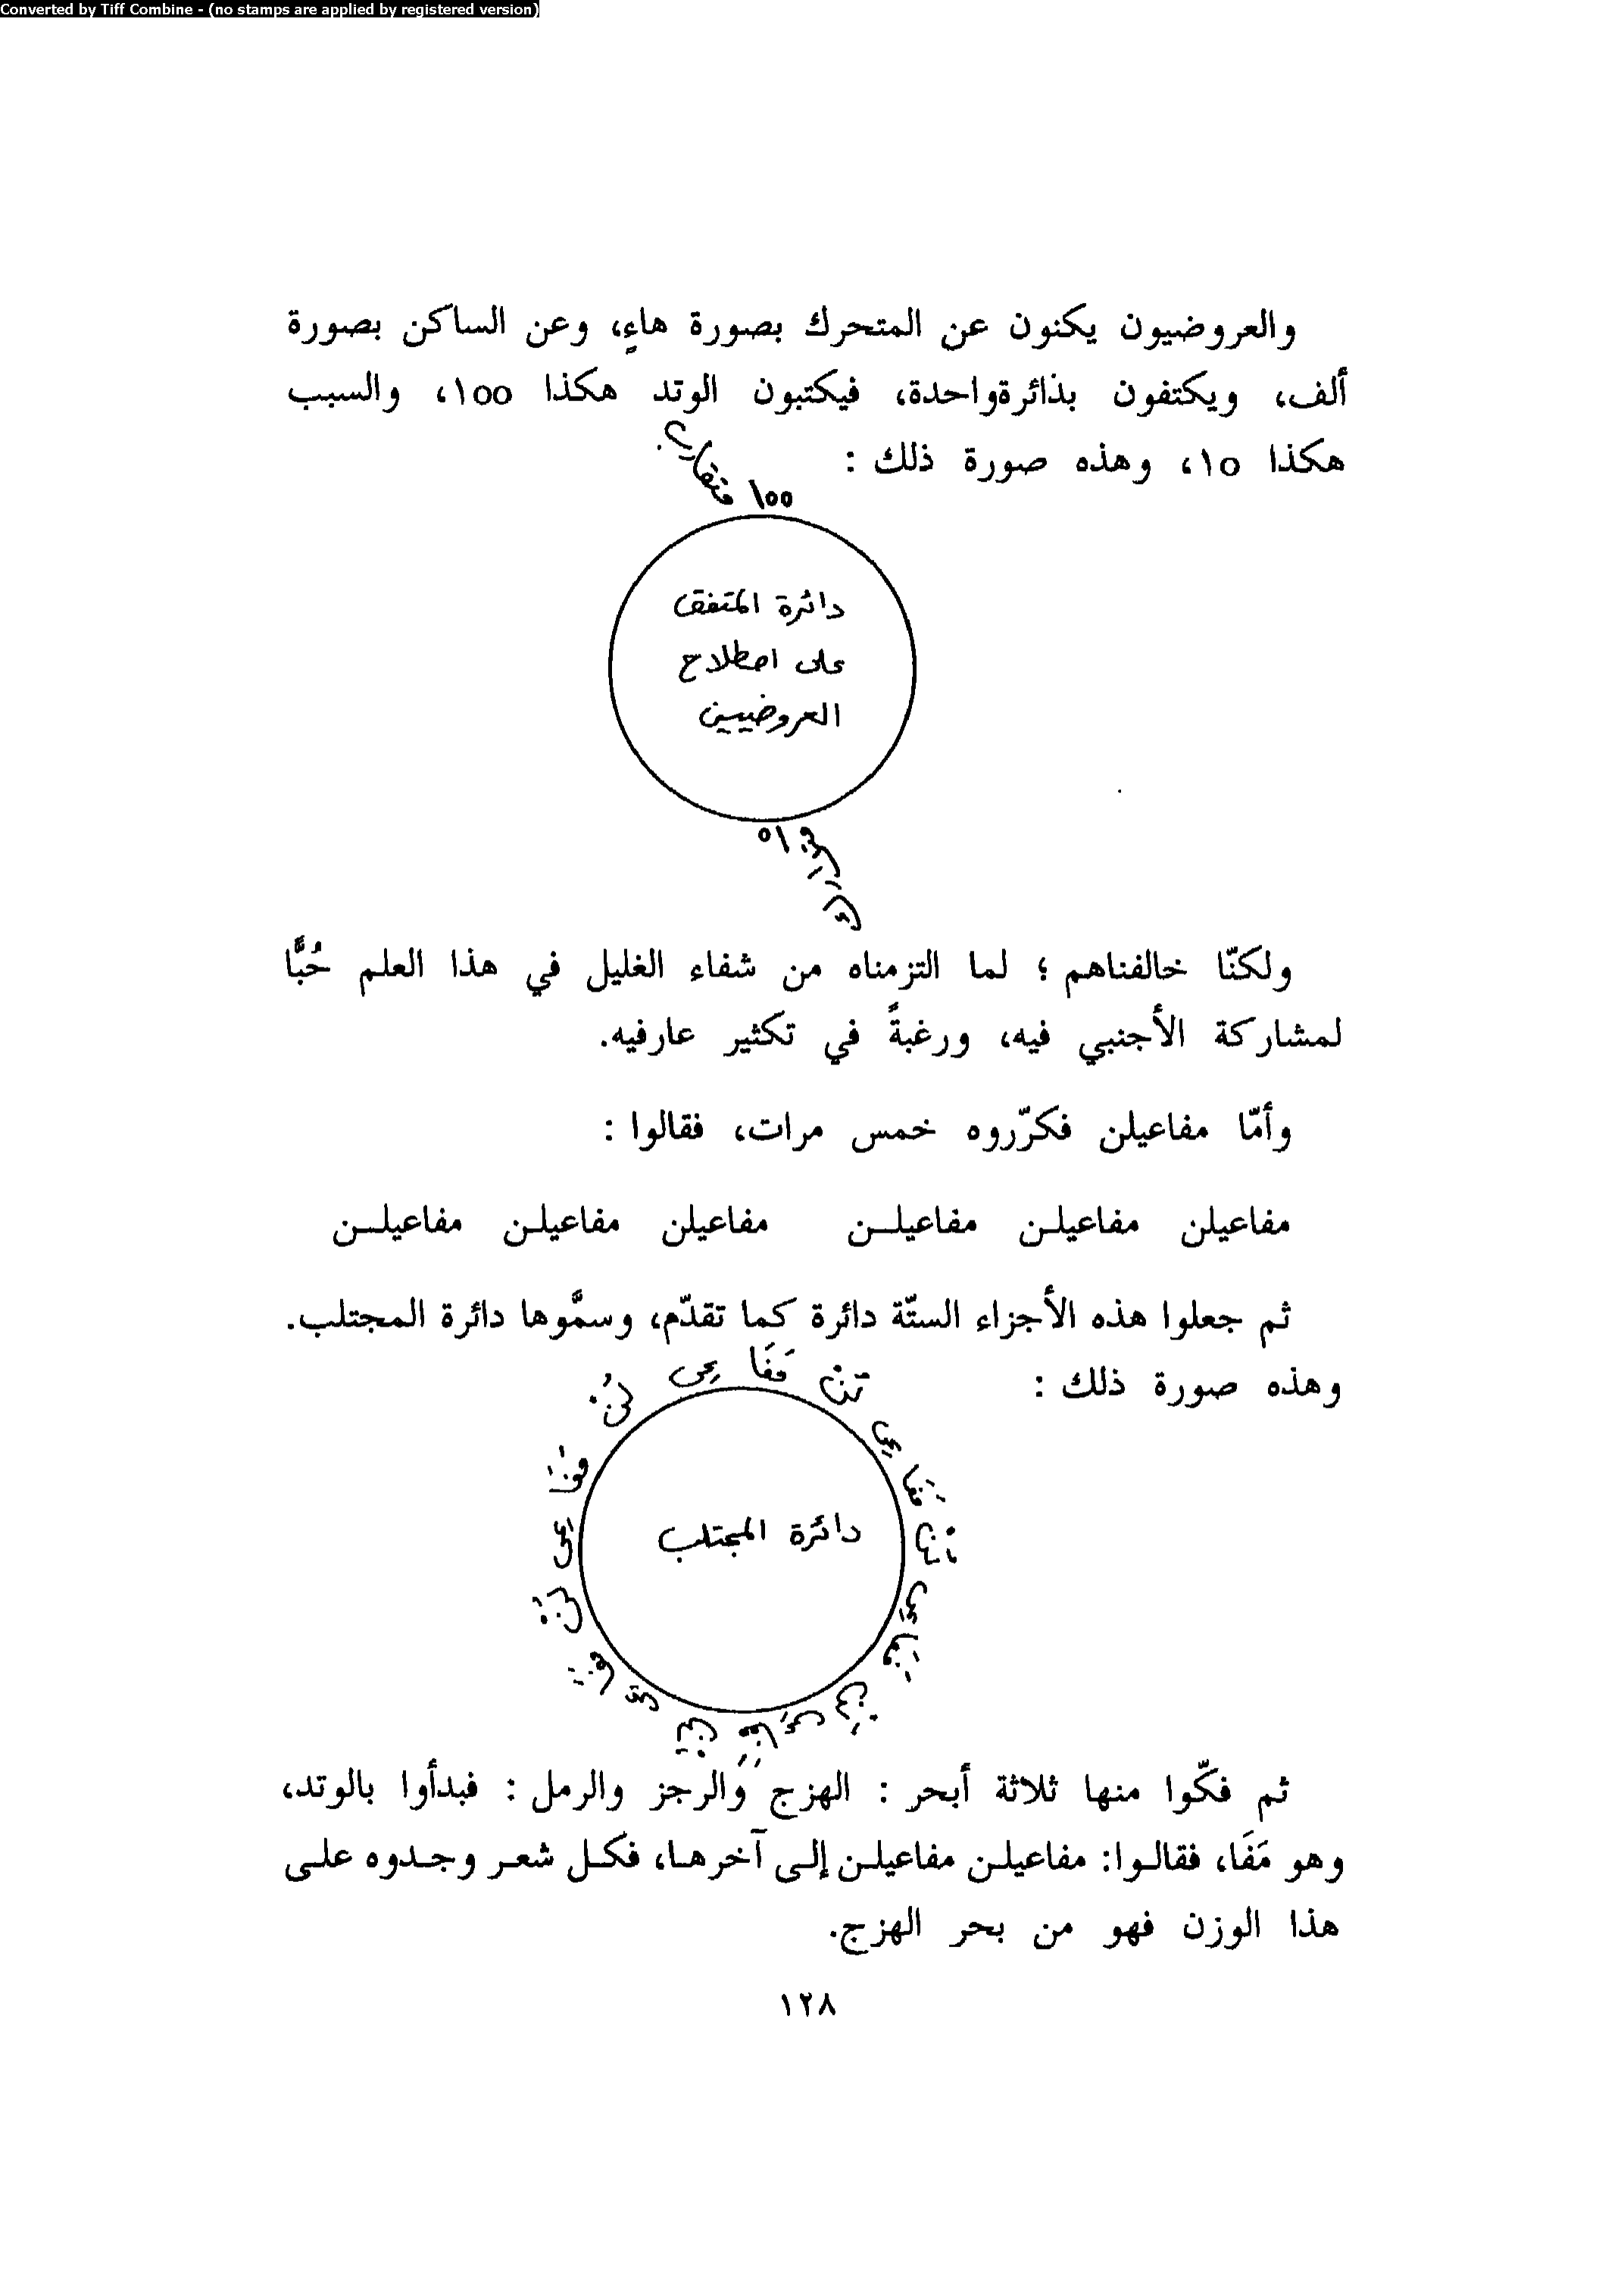 Converted by Tiff Combine - (no stamps are applied by registered version)
والعروضيون يكنون عن المتحرك بصورة هاءٍ، وعن الساكن بصورة
ألف، ويكتفون بذائرةواحدة، فيكتبون الوتد هكذا ١٥٥، والسبب
هكذا ١٥، وهذه صورة ذلك :
متقارب
١٥٥
دائرة المتفق
على اصطلاح
العروضيين
١٥
متدارك
ولكنّا خالفناهم ؛ لما التزمناه من شفاء الغليل في هذا العلم حُبًّا
لمشاركة الأجنبي فيه، ورغبةً في تكثير عارفيه.
وأمّا مفاعيلن فكرّروه خمس مرات، فقالوا :
مفاعيلن مفاعيلـن مفاعيلــن مفاعيلن مفاعيلـن مفاعيلــن
ثم جعلوا هذه الأجزاء الستّة دائرة كما تقدّم، وسمَّوها دائرة المجتلب.
وهذه صورة ذلك :
مَفَا عِى لُنْ مَفَا عِى لُنْ مَفَا عِى لُنْ مَفَا عِى لُنْ مَفَا عِى لُنْ مَفَا عِى لُنْ
دائرة المجتلب
ثم فكّوا منها ثلاثة أبحر : الهزج والرجز والرمل : فبدأوا بالوتد،
وهو مَفَا، فقالـوا: مفاعيلـن مفاعيلـن إلـى آخرهـا، فكـل شعـر وجـدوه علـى
هذا الوزن فهو من بحر الهزج.
١٢٨